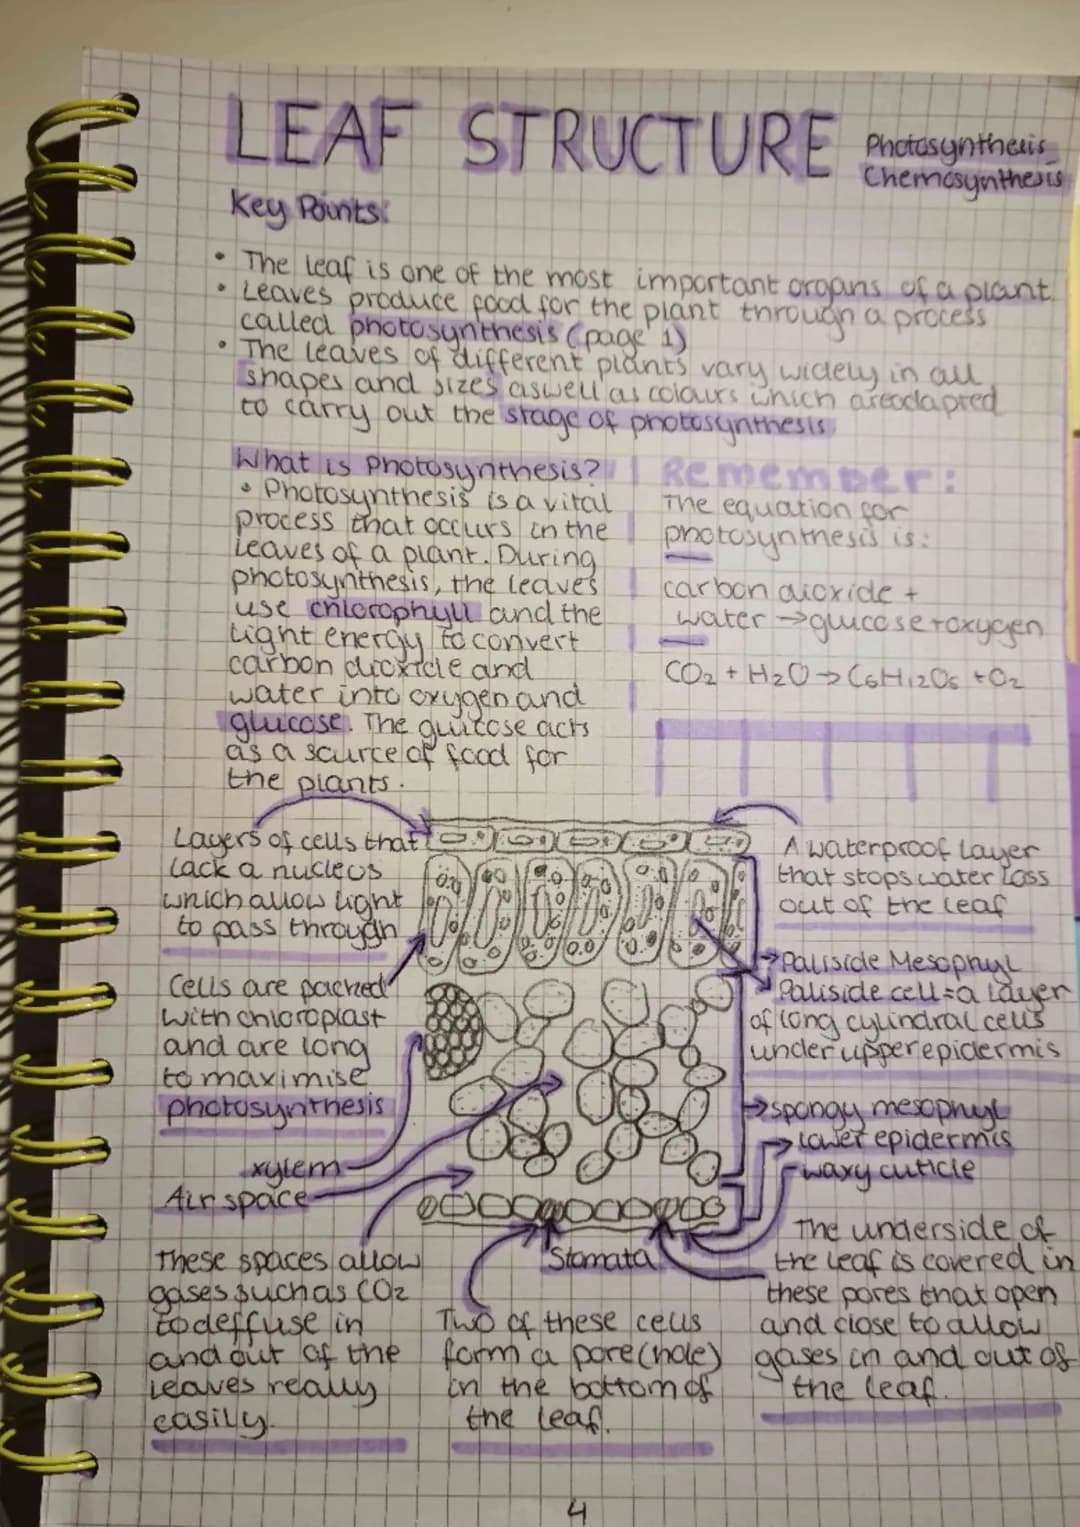 LEAF STRUCTURE
Photosynthesis
Chemosynthesis
Key Points:
• The leaf is one of the most important organs of a plant
• Leaves produce food for the plant through a process
called photosynthesis (page 1)
• The leaves of different plants vary widely in all
shapes and sizes aswell as colours which are adapted
to carry out the stage of photosynthesis
What is Photosynthesis?
• Photosynthesis is a vital
process that occurs in the
leaves of a plant. During
photosynthesis, the leaves
use chlorophyll and the
light energy to convert
carbon dioxide and
water into oxygen and
glucose. The glucose acts
as a source of food for
the plants.
Remember:
The equation for
photosynthesis is:
carbon dioxide +
water → glucose + oxygen
CO2 + H2O → C6H12O6 + O2
Layers of cells that
lack a nucleus
which allow light
to pass through
Cells are packed
with chloroplast
and are long
to maximise
photosynthesis
xylem
Air space
These spaces allow
gases such as CO2
to deffuse in
and out of the
leaves really
easily.
A waterproof layer
that stops water loss
out of the leaf
Paliside Mesophyl
Paliside cell = a layer
of long cylindral cells
under upper epidermis
spongy mesophyl
lower epidermis
waxy cuticle
Stomata
Two of these cells
form a pore (hole)
in the bottom of
the leaf.
The underside of
the leaf is covered in
these pores that open
and close to allow
gases in and out of
the leaf.
4